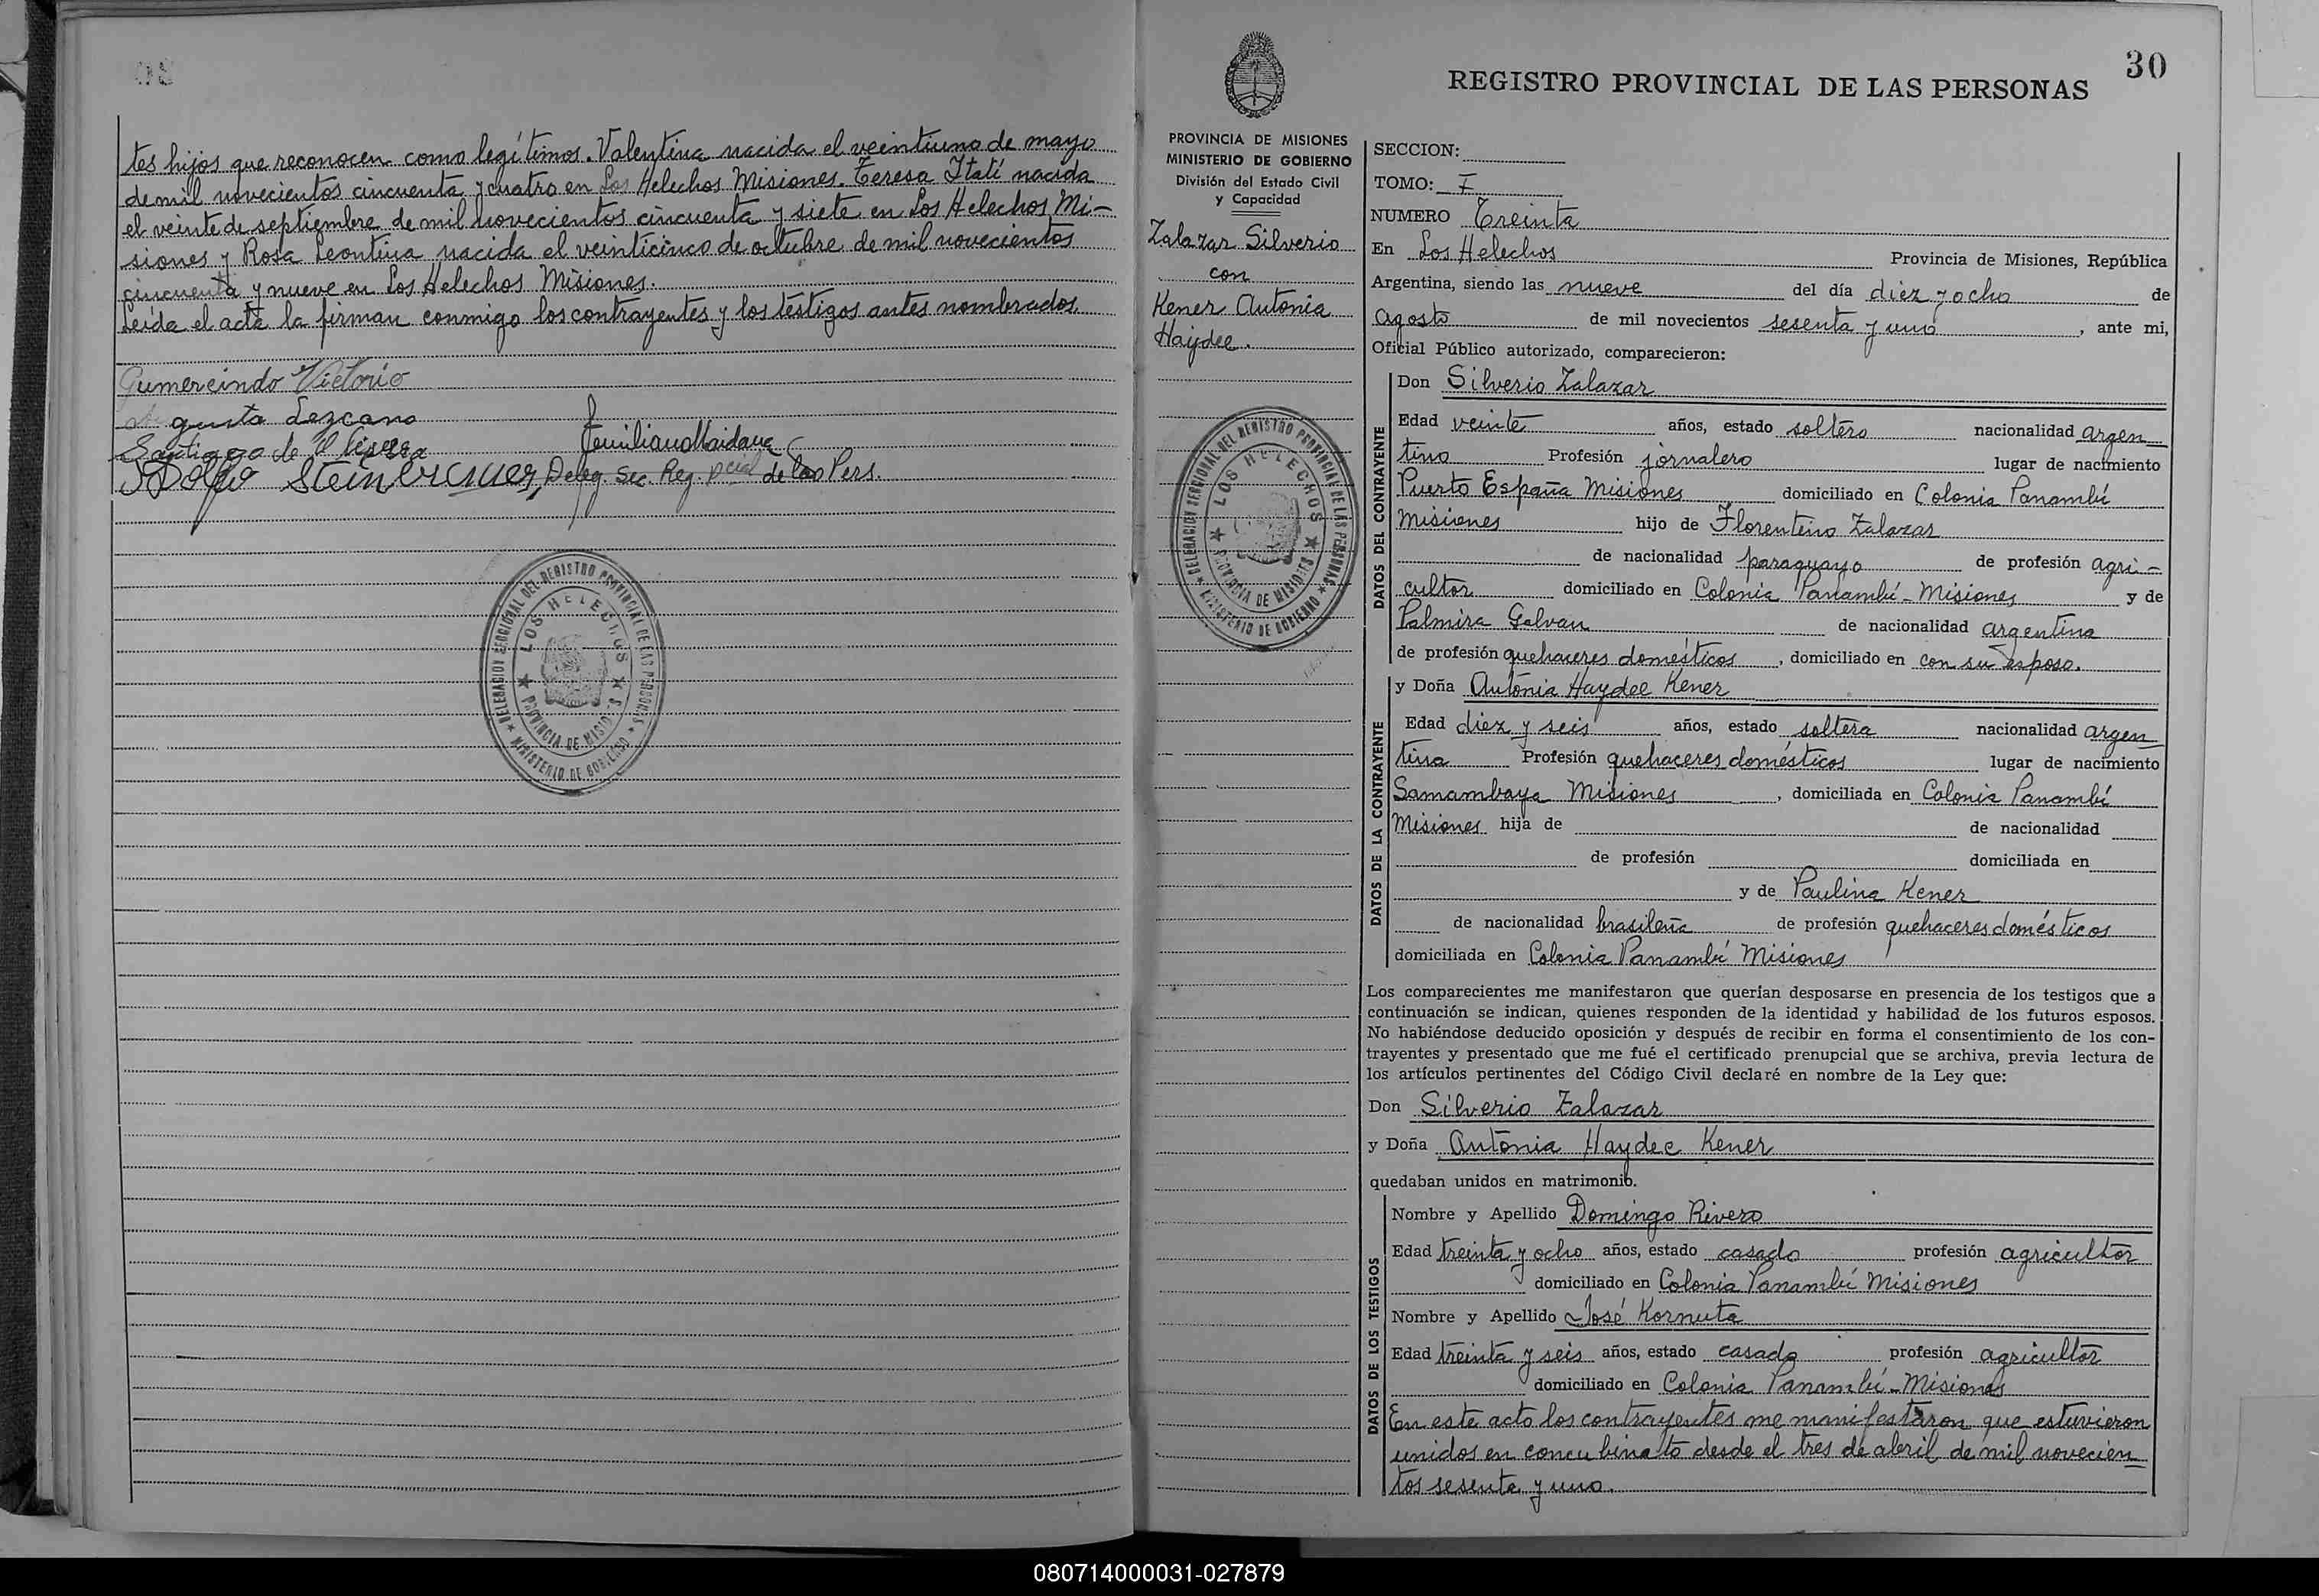 tes hijos que reconocen como legítimos. Valentina nacida el veintiuno de mayo
de mil novecientos cincuenta y cuatro en Los Helechos Misiones. Teresa Itatí nacida
el veinte de septiembre de mil novecientos cincuenta y siete en Los Helechos Mi-
siones y Rosa Leontina nacida el veinticinco de octubre de mil novecientos
cincuenta y nueve en Los Helechos Misiones.
Leída el acta la firman conmigo los contrayentes y los testigos antes nombrados
Gumercindo Victorio
Augusta Lezcano
Santiago de Olivera
Deleg. Sec. Reg. Pcial de las Pers.
DELEGACION SECCIONAL DEL REGISTRO PROVINCIAL DE LAS PERSONAS
LOS HELECHOS
PROVINCIA DE MISIONES
MINISTERIO DE GOBIERNO
30
REGISTRO PROVINCIAL DE LAS PERSONAS
PROVINCIA DE MISIONES
MINISTERIO DE GOBIERNO
División del Estado Civil
y Capacidad
Zalazar Silverio
con
Kener Antonia
Haydee.
DELEGACION SECCIONAL DEL REGISTRO PROVINCIAL DE LAS PERSONAS
LOS HELECHOS
PROVINCIA DE MISIONES
MINISTERIO DE GOBIERNO
SECCION:
TOMO: I
NUMERO Treinta
En Los Helechos Provincia de Misiones, República
Argentina, siendo las nueve del día diez y ocho de
Agosto de mil novecientos sesenta y uno, ante mi,
Oficial Público autorizado, comparecieron:
DATOS DEL CONTRAYENTE
Don Silverio Zalazar
Edad veinte años, estado soltero nacionalidad argen
tino Profesión jornalero lugar de nacimiento
Puerto España Misiones domiciliado en Colonia Panambí
Misiones hijo de Florentino Zalazar
de nacionalidad paraguayo de profesión agri-
cultor domiciliado en Colonia Panambí - Misiones y de
Palmira Galvan de nacionalidad argentina
de profesión quehaceres domésticos, domiciliado en con su esposo.
DATOS DE LA CONTRAYENTE
y Doña Antonia Haydee Kener
Edad diez y seis años, estado soltera nacionalidad argen
tina Profesión quehaceres domésticos lugar de nacimiento
Samambaya Misiones, domiciliada en Colonia Panambí
Misiones hija de de nacionalidad
de profesión domiciliada en
y de Paulina Kener
de nacionalidad brasileña de profesión quehaceres domésticos
domiciliada en Colonia Panambí Misiones
Los comparecientes me manifestaron que querían desposarse en presencia de los testigos que a
continuación se indican, quienes responden de la identidad y habilidad de los futuros esposos.
No habiéndose deducido oposición y después de recibir en forma el consentimiento de los con-
trayentes y presentado que me fué el certificado prenupcial que se archiva, previa lectura de
los artículos pertinentes del Código Civil declaré en nombre de la Ley que:
Don Silverio Zalazar
y Doña Antonia Haydee Kener
quedaban unidos en matrimonio.
DATOS DE LOS TESTIGOS
Nombre y Apellido Domingo Rivero
Edad treinta y ocho años, estado casado profesión agricultor
domiciliado en Colonia Panambí Misiones
Nombre y Apellido José Kornuta
Edad treinta y seis años, estado casado profesión agricultor
domiciliado en Colonia Panambí - Misiones
En este acto los contrayentes me manifestaron que estuvieron
unidos en concubinato desde el tres de abril de mil novecien
tos sesenta y uno.
080714000031-027879